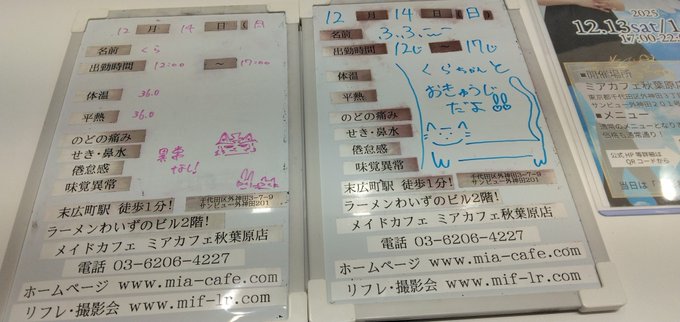 12月 14日(日)
名前 くら
出勤時間 12:00 ~ 17:00
体温 36.0
平熱 36.0
のどの痛み
せき・鼻水
倦怠感
味覚異常
異常
なし!
末広町駅 徒歩1分!
千代田区外神田3-7-9
サンビュー外神田201
ラーメンわいずのビル2階!
メイドカフェ ミアカフェ秋葉原店
電話 03-6206-4227
ホームページ www.mia-cafe.com
リフレ・撮影会 www.mif-lr.com
12月 14日(日)
名前
出勤時間 12じ ~ 17じ
体温
平熱
のどの痛み
せき・鼻水
倦怠感
味覚異常
くらちゃんと
おきゅうじ
だよ!!
末広町駅 徒歩1分!
千代田区外神田3-7-9
サンビュー外神田201
ラーメンわいずのビル2階!
メイドカフェ ミアカフェ秋葉原店
電話 03-6206-4227
ホームページ www.mia-cafe.com
リフレ・撮影会 www.mif-lr.com
2025
12.13sat/1
17:00-22:0
■開催場所
ミアカフェ秋葉原店
東京都千代田区外神田3
サンビュー外神田201号
■メニュー
通常のメニューとなりま
価格も通常通り!
公式HP等詳細は
QRコードから
当日は